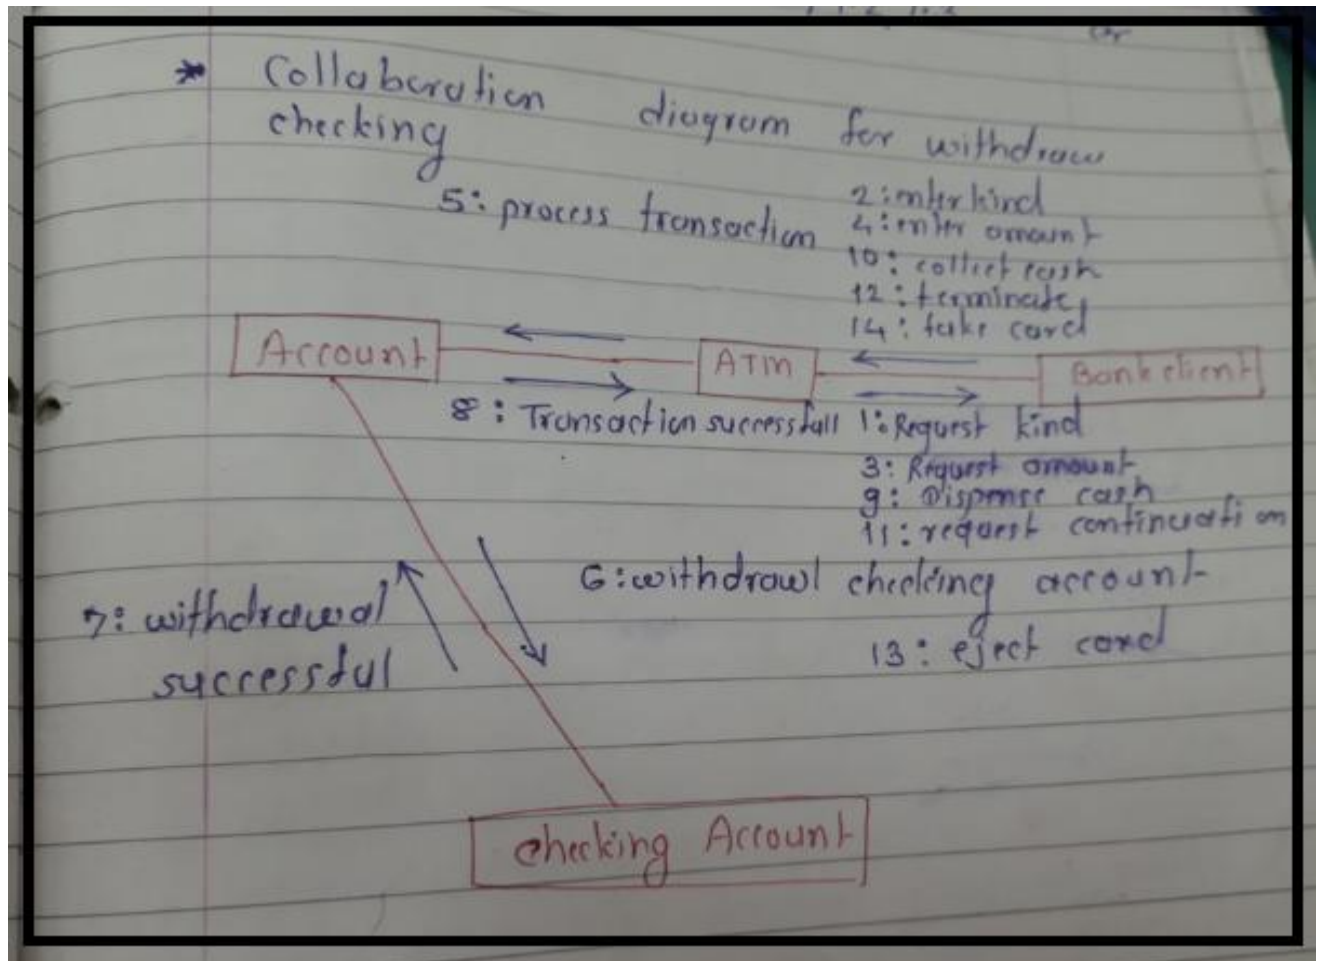 * Collaboration diagram for withdraw
checking
5: process transaction
2: enter kind
4: enter amount
10: collect cash
12: terminate
14: take card
Account
ATM
Bank client
8: Transaction successfull
1: Request kind
3: Request amount
9: Dispense cash
11: request continuation
6: withdrawl checking account
7: withdrawal
successful
13: eject card
checking Account